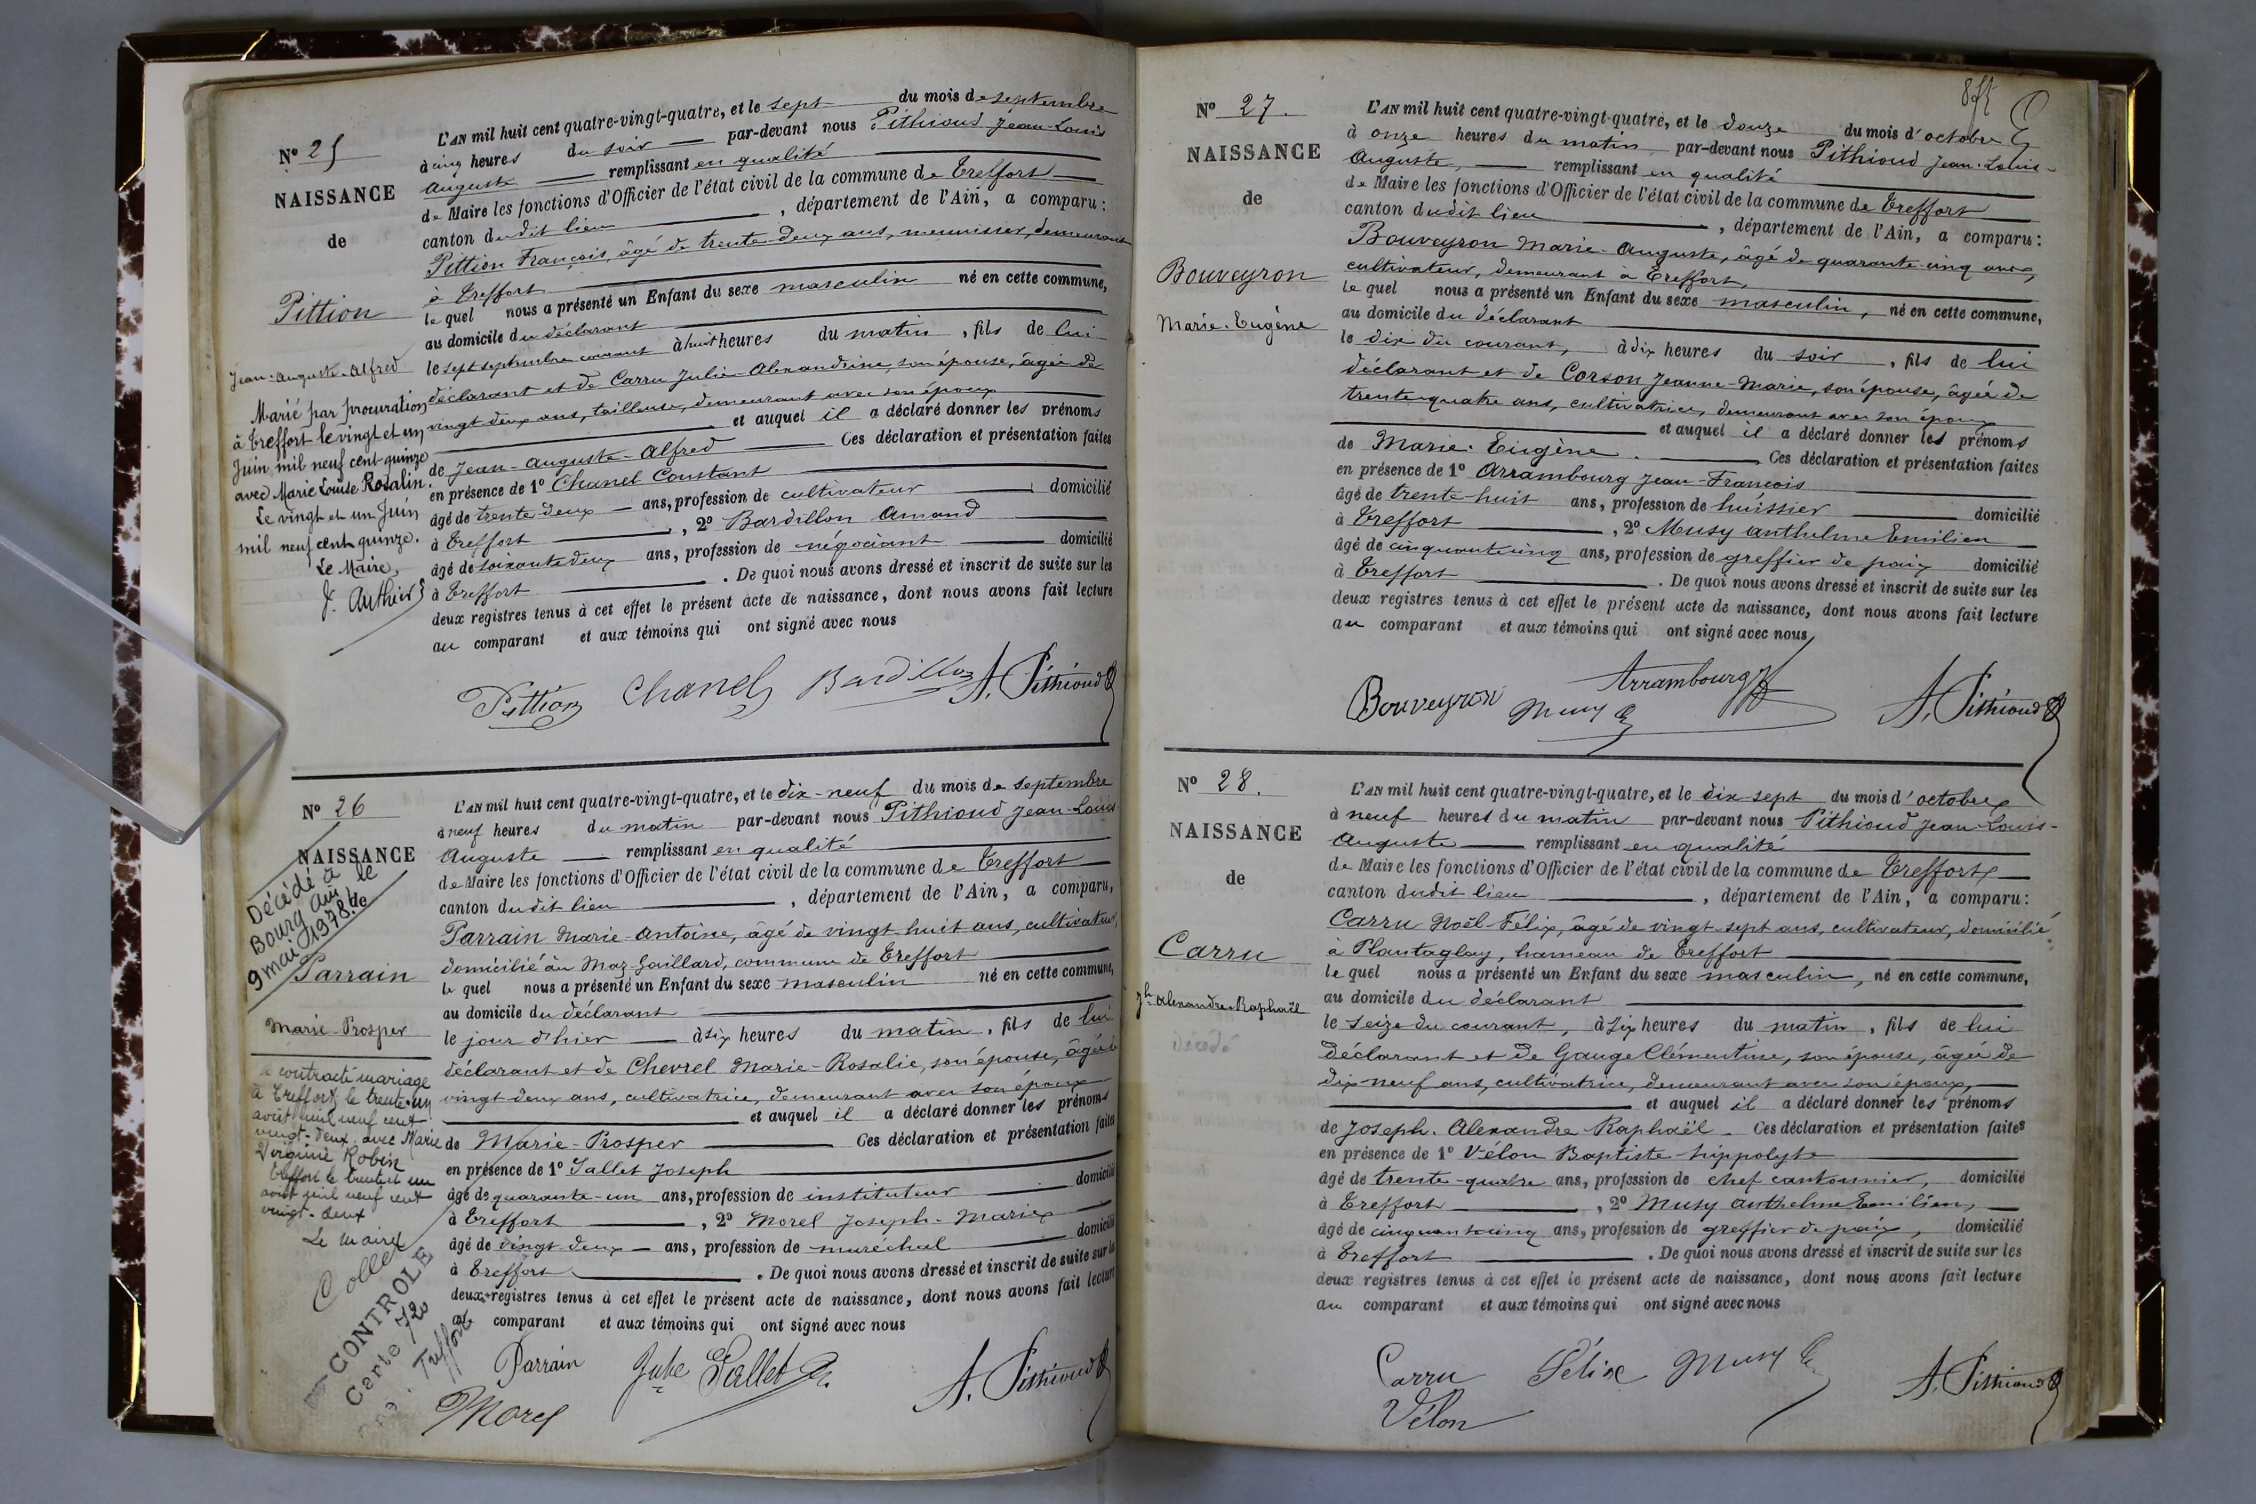 N° 25
NAISSANCE
de
Pittion
Jean-Auguste-Alfred
Marié par procuration
à Treffort le vingt et un
Juin mil neuf cent quinze
avec Marie Louise Rosalin.
Le vingt et un Juin
mil neuf cent quinze.
Le Maire,
L'AN mil huit cent quatre-vingt-quatre, et le sept du mois de septembre
à cinq heures du soir par-devant nous Pithioud Jean-Louis
Auguste remplissant en qualité
de Maire les fonctions d'Officier de l'état civil de la commune de Treffort
canton dudit lieu, département de l'Ain, a comparu :
Pittion François, âgé de trente-deux ans, menuisier, demeurant
à Treffort
le quel nous a présenté un Enfant du sexe masculin né en cette commune,
au domicile du déclarant
le sept septembre courant à huit heures du matin, fils de lui
déclarant et de Carru Julie-Alexandrine, son épouse, âgée de
vingt deux ans, tailleuse, demeurant avec son époux
et auquel il a déclaré donner les prénoms
de Jean-Auguste-Alfred Ces déclaration et présentation faites
en présence de 1° Chanel Constant
âgé de trente deux ans, profession de cultivateur domicilié
à Treffort, 2° Bardillon Amand
âgé de soixante deux ans, profession de négociant domicilié
à Treffort. De quoi nous avons dressé et inscrit de suite sur les
deux registres tenus à cet effet le présent acte de naissance, dont nous avons fait lecture
au comparant et aux témoins qui ont signé avec nous
Pittion Chanel Bardillon A. Pithioud
N° 26
NAISSANCE
de
Décédé à
Bourg Ain le
9 mai 1978.
Parrain
Marie-Prosper
a contracté mariage
à Treffort le trente-un
août mil neuf cent
vingt-deux avec Marie
Virginie Robin
Treffort le trente et un
août mil neuf cent
vingt-deux
Le Maire
CONTROLE
Treffort
L'AN mil huit cent quatre-vingt-quatre, et le dix-neuf du mois de septembre
à neuf heures du matin par-devant nous Pithioud Jean-Louis
Auguste remplissant en qualité
de Maire les fonctions d'Officier de l'état civil de la commune de Treffort
canton dudit lieu, département de l'Ain, a comparu,
Parrain Marie-Antoine, âgé de vingt huit ans, cultivateur,
domicilié au Maz-Gaillard, commune de Treffort
le quel nous a présenté un Enfant du sexe masculin né en cette commune,
au domicile du déclarant
le jour d'hier à six heures du matin, fils de lui
déclarant et de Chevrel Marie-Rosalie, son épouse, âgée de
vingt-deux ans, cultivatrice, demeurant avec son époux
et auquel il a déclaré donner les prénoms
de Marie-Prosper Ces déclaration et présentation faites
en présence de 1° Sallet Joseph
âgé de quarante-un ans, profession de instituteur domicilié
à Treffort, 2° Morel Joseph-Marie
âgé de vingt deux ans, profession de maréchal domicilié
à Treffort. De quoi nous avons dressé et inscrit de suite sur les
deux registres tenus à cet effet le présent acte de naissance, dont nous avons fait lecture
au comparant et aux témoins qui ont signé avec nous
Parrain Sallet A. Pithioud
Morel
N° 27.
NAISSANCE
de
Bouveyron
Marie-Eugène
L'AN mil huit cent quatre-vingt-quatre, et le douze du mois d'octobre
à onze heures du matin par-devant nous Pithioud Jean-Louis-
Auguste, remplissant en qualité
de Maire les fonctions d'Officier de l'état civil de la commune de Treffort
canton dudit lieu, département de l'Ain, a comparu :
Bouveyron Marie-Auguste, âgé de quarante-cinq ans,
cultivateur, demeurant à Treffort,
le quel nous a présenté un Enfant du sexe masculin, né en cette commune,
au domicile du déclarant
le dix du courant, à dix heures du soir, fils de lui
déclarant et de Corson Jeanne-Marie, son épouse, âgée de
trente-quatre ans, cultivatrice, demeurant avec son époux
et auquel il a déclaré donner les prénoms
de Marie-Eugène. Ces déclaration et présentation faites
en présence de 1° Arrambourg Jean-François
âgé de trente-huit ans, profession de huissier domicilié
à Treffort, 2° Musy Anthelme Emilien
âgé de cinquante cinq ans, profession de greffier de paix domicilié
à Treffort. De quoi nous avons dressé et inscrit de suite sur les
deux registres tenus à cet effet le présent acte de naissance, dont nous avons fait lecture
au comparant et aux témoins qui ont signé avec nous
Arrambourg
Bouveyron Musy A. Pithioud
N° 28.
NAISSANCE
de
Carru
Jh Alexandre-Raphaël
L'AN mil huit cent quatre-vingt-quatre, et le dix-sept du mois d'octobre
à neuf heures du matin par-devant nous Pithioud Jean-Louis-
Auguste remplissant en qualité
de Maire les fonctions d'Officier de l'état civil de la commune de Treffort
canton dudit lieu, département de l'Ain, a comparu :
Carru Noël-Félix, âgé de vingt-sept ans, cultivateur, domicilié
à Plantaglay, hameau de Treffort
le quel nous a présenté un Enfant du sexe masculin, né en cette commune,
au domicile du déclarant
le seize du courant, à six heures du matin, fils de lui
déclarant et de Gauge Clémentine, son épouse, âgée de
dix-neuf ans, cultivatrice, demeurant avec son époux,
et auquel il a déclaré donner les prénoms
de Joseph-Alexandre Raphaël. Ces déclaration et présentation faites
en présence de 1° Vélon Baptiste-hippolyte
âgé de trente-quatre ans, profession de chef cantonnier, domicilié
à Treffort, 2° Musy Anthelme Emilien,
âgé de cinquante cinq ans, profession de greffier de paix, domicilié
à Treffort. De quoi nous avons dressé et inscrit de suite sur les
deux registres tenus à cet effet le présent acte de naissance, dont nous avons fait lecture
au comparant et aux témoins qui ont signé avec nous
Carru Félix Musy A. Pithioud
Vélon